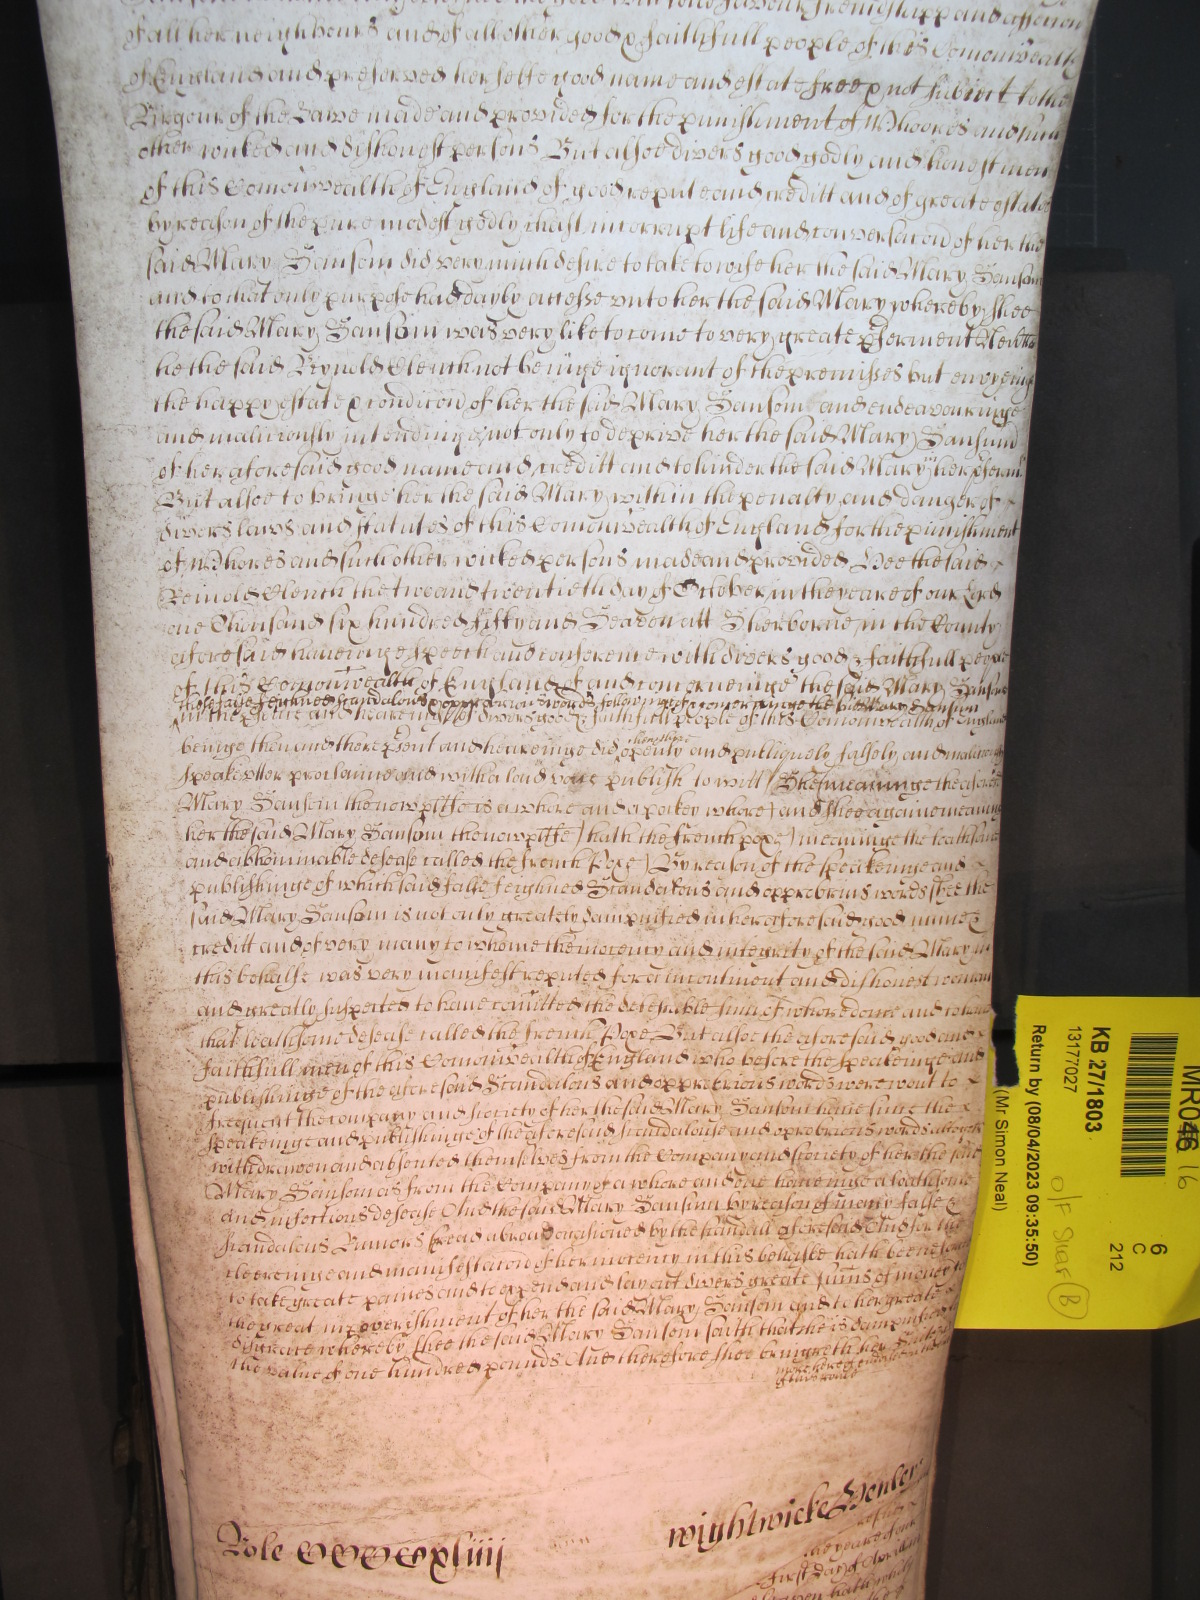 of all her neighbours and of all other good & faithfull people of this Comonwealth
of England and preserved her selfe good name and estate free & not subiect to the
Rigour of the Lawe made and provided for the punishment of Whoores and such
other wicked and dishonest persons But alsoe divers good godly and honest men
of this Comonwealth of England of good repute and creditt and of greate estate
by reason of the pure modest godly chast incorrupt life and conversacion of her the
said Mary Sansom did very much desire to take to wife her the said Mary Sansom
and to that only purpose had dayly accesse unto her the said Mary whereby shee
the said Mary Sansom was very like to come to very greate pferment Neverthe
he the said Reynold Clench not beinge ignorant of the premisses but envyeinge
the happy estate & condicion of her the said Mary Sansom and endeavouringe
and maliciously intendinge not only to deprive her the said Mary Sansom
of her aforesaid good name and creditt and to hinder the said Mary her pferm
But alsoe to bringe her the said Mary within the penalty and danger of
divers laws and statutes of this Comonwealth of England for the punishment
of Whores and such other wicked persons made and provided Hee the said
Reinold Clench the two and twentieth day of October in the yeare of our Lord
one Thousand six hundred fifty and Seaven att Sherborne in the County
aforesaid haveinge speech and conference with divers good & faithfull people
of this Comonwealth of England of and concerneinge the said Mary Sansom
these false feighned scandalous & opprobrious words followinge of & concerninge the said Mary Sansom
in the psence and heareing of divers good & faithfull people of this Comonwealth of England
beinge then and there psent and heareinge did openly and publiquely falsely and maliciously
speake utter proclaime and with a loud voice publish to witt She (meaninge the aforesaid
Mary Sansom the now pltffe) is a whore and a pockey whore and shee (againe meaning
her the said Mary Sansom the now pltffe) hath the french poxe (meaninge the loathsome
and abhominable desease called the french Poxe) By reason of the speakeinge and
publishinge of which said false feighned Scandalous and opprobrius words shee the
said Mary Sansom is not only greately dampnified in her aforesaid good name &
creditt and of very many to whome the inocency and integrity of the said Mary in
this behalfe was very manifest reputed for a incontinent and dishonest woman
and greatly suspected to have comitted the detestable sinn of whoredome and to have
that loathsome desease called the french Poxe But alsoe the aforesaid good and
faithfull men of this Comonwealth of England who before the speakeinge and
publishinge of the aforesaid Scandalous and opprobrious words were wont to
frequent the company and society of her the said Mary Sansom have since the
speakeinge and publishinge of the aforesaid scandalouse and oprobrious words altogeth
withdrawen and absented themselves from the Company and society of her the said
Mary Sansom as from the Company of a whore and one haveinge a loathsome
and infectious desease And the said Mary Sansom by reason of many false &
scandalous Rumors spread abroad occasioned by the scandall aforesaid And for the
cleereinge and manifestacion of her inocency in this behalfe hath beene forced
to take greate paines and to expend and lay out divers greate sums of money to
the great impoverishment of her the said Mary Sansom and to her greate
disgrace whereby shee the said Mary Sansom saith that she is dampnified to
the value of one hundred pounds And therefore shee bringeth her Suite
Role CCCCxliiij
wightwicke Henley
First day of
MR046
16
KB 27/1803
13177027
Return by (08/04/2023 09:35:50)
(Mr Simon Neal)
6
C
212
B